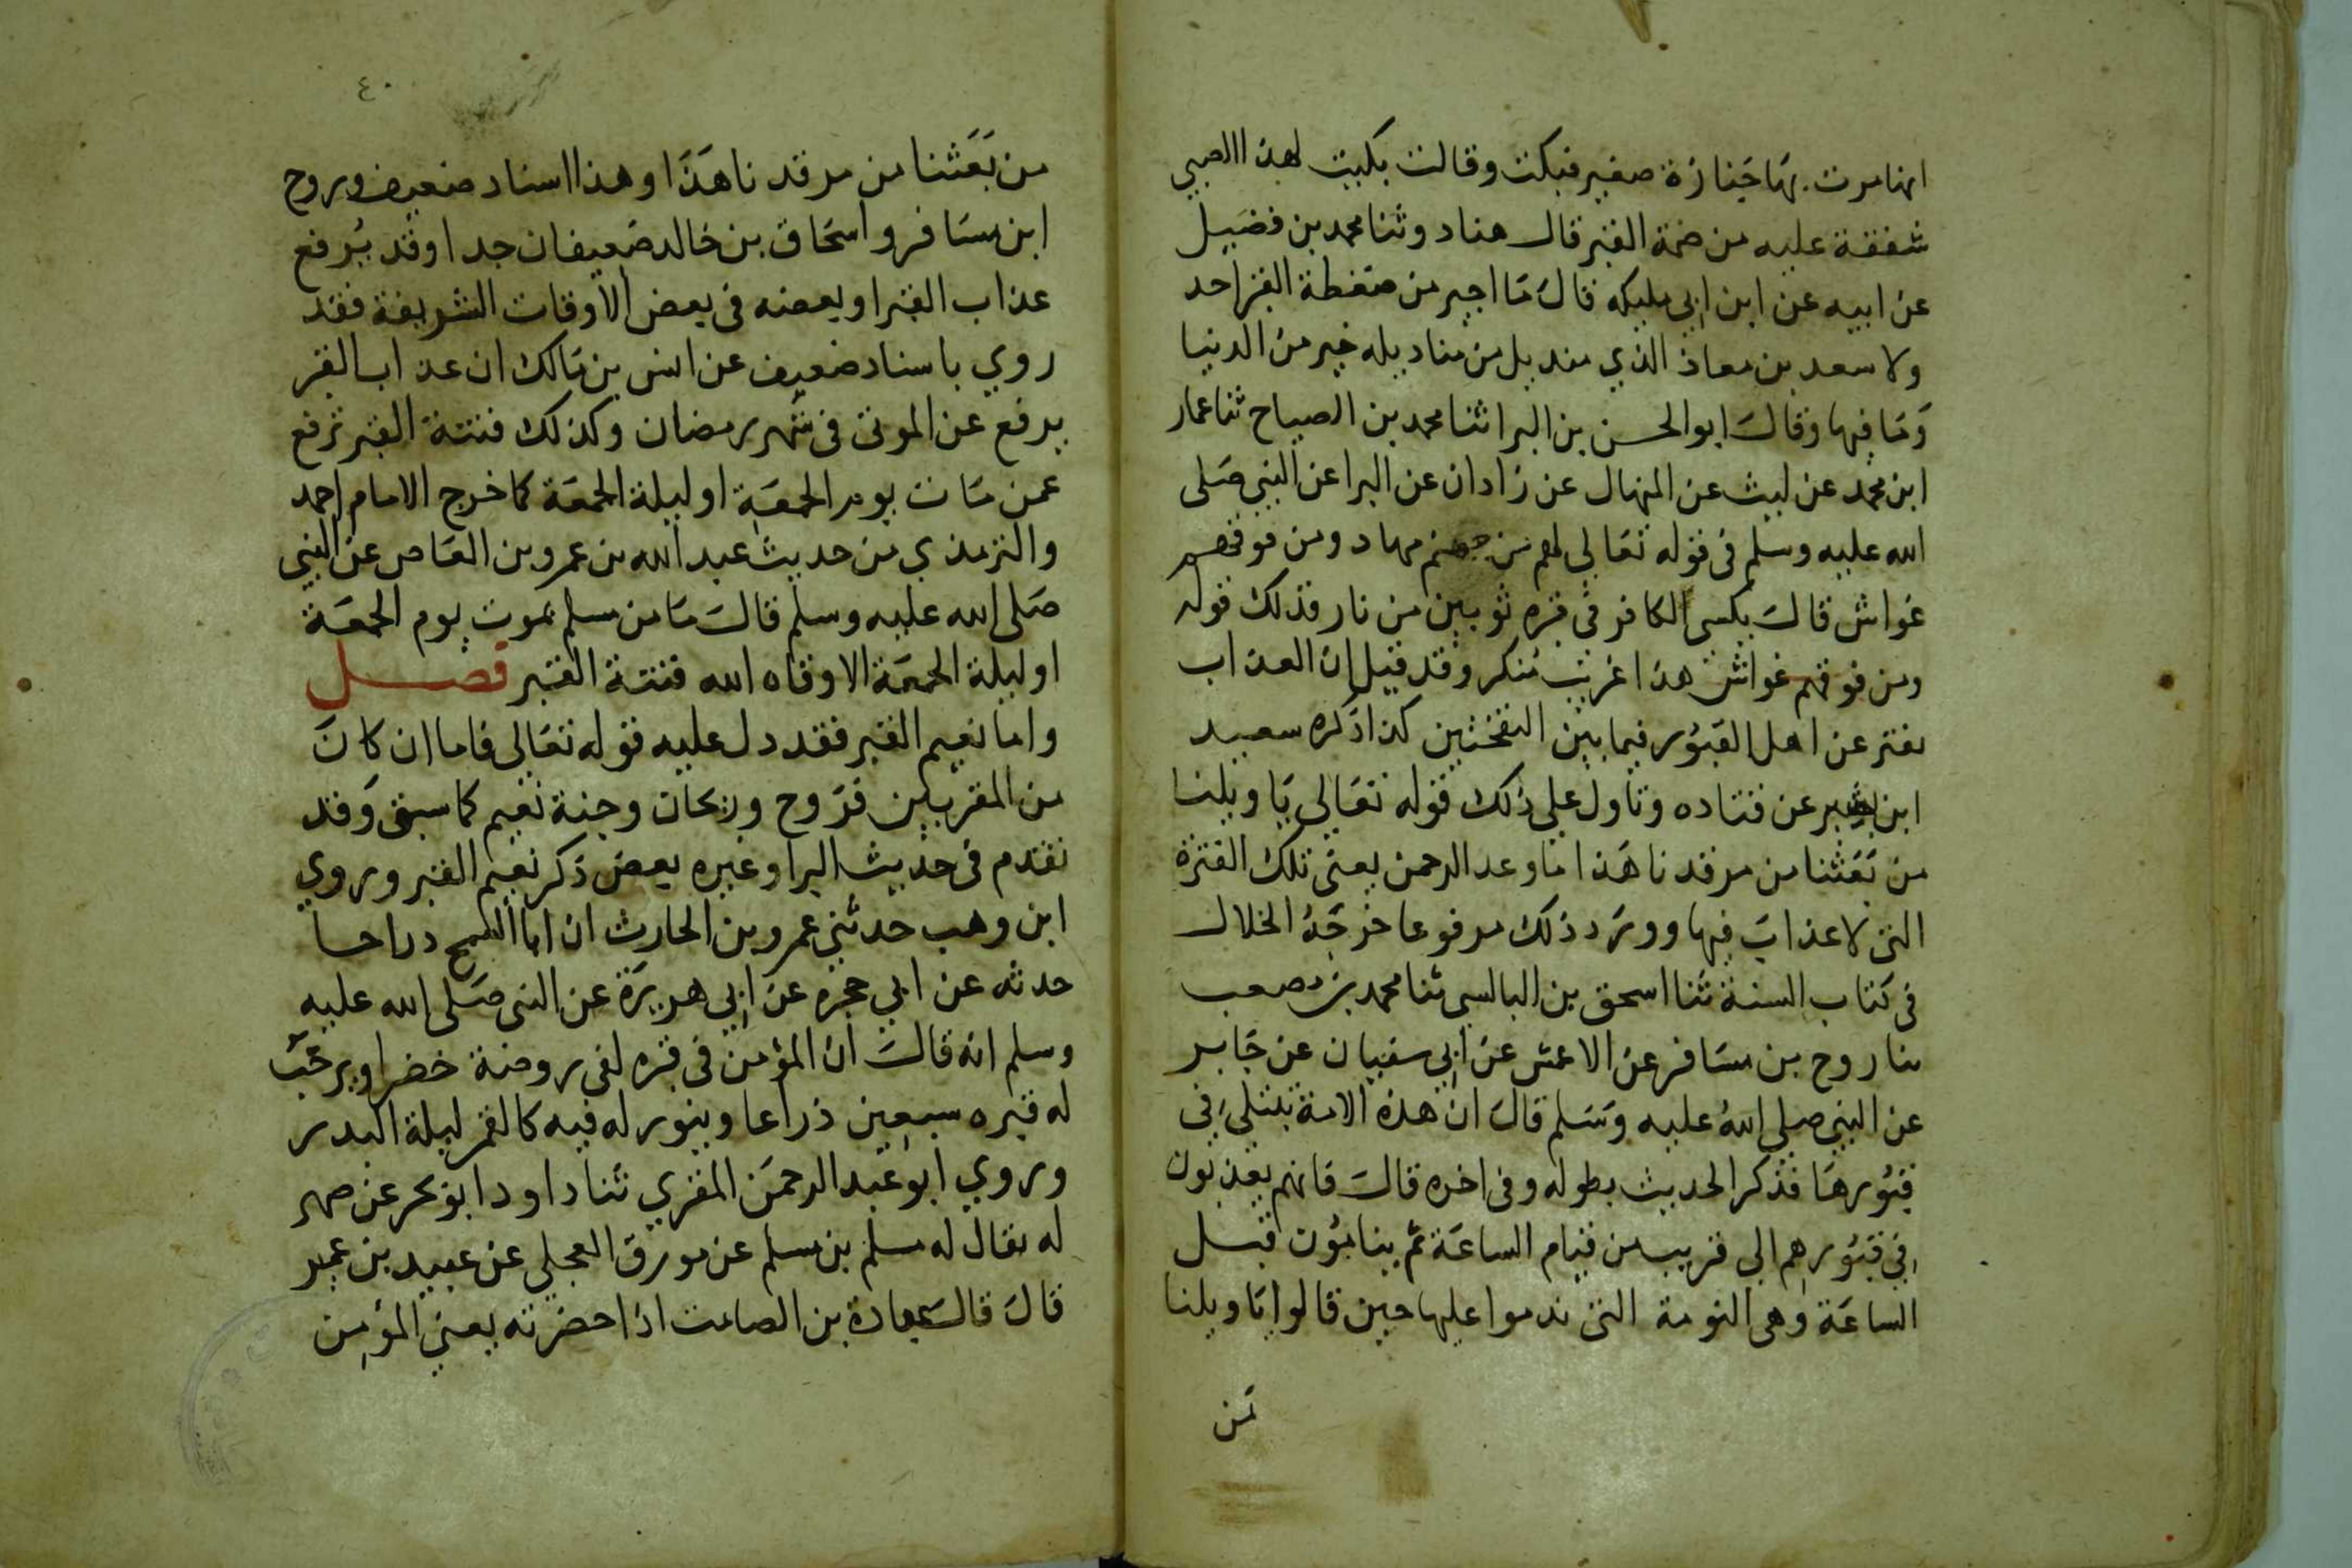 انها مرت بها جنازة صغير فبكت وقالت بكيت لهذا الصبي
شفقة عليه من ضمة القبر قال هناد وثنا محمد بن فضيل
عن ابيه عن ابن ابي مليكه قال ما اجير من ضغطة القبر احد
ولا سعد بن معاذ الذي منديل من مناديله خير من الدنيا
وما فيها وقال ابو الحسن بن البرا ثنا محمد بن الصباح ثنا عمار
ابن محمد عن ليث عن المنهال عن زادان عن البرا عن النبي صلى
الله عليه وسلم في قوله تعالى لهم من جهنم مهاد ومن فوقهم
غواش قال يكسى الكافر في قبره ثوبين من نار فذلك قوله
ومن فوقهم غواش هذا غريب منكر وقد قيل ان العذاب
يفتر عن اهل القبور فيما بين النفختين كذا ذكره سعيد
ابن بشير عن قتاده وتاول على ذلك قوله تعالى يا ويلنا
من بعثنا من مرقدنا هذا ما وعد الرحمن يعنى تلك الفترة
التى لا عذاب فيها وورد ذلك مرفوعا خرجه الخلال
في كتاب السنة ثنا اسحق بن البالسي ثنا محمد بن مصعب
ثنا روح بن مسافر عن الاعمش عن ابي سفيان عن جابر
عن النبي صلى الله عليه وسلم قال ان هذه الامة تبتلى في
قبورها فذكر الحديث بطوله وفى اخره قال فانهم يعذبون
في قبورهم الى قريب من قيام الساعة ثم ينامون قبل
الساعة وهي النومة التى ندموا عليها حين قالوا يا ويلنا
من
٤٠
من بعثنا من مرقدنا هذا وهذا اسناد ضعيف وروح
ابن مسافر واسحاق بن خالد ضعيفان جدا وقد يرفع
عذاب القبر او بعضه فى بعض الاوقات الشريفة فقد
روي باسناد ضعيف عن انس بن مالك ان عذاب القبر
يرفع عن الموتى فى شهر رمضان وكذلك فتنة القبر ترفع
عمن مات يوم الجمعة او ليلة الجمعة كما خرج الامام احمد
والترمذي من حديث عبد الله بن عمرو بن العاص عن النبي
صلى الله عليه وسلم قال ما من مسلم يموت يوم الجمعة
او ليلة الجمعة الا وقاه الله فتنة القبر فصل
واما نعيم القبر فقد دل عليه قوله تعالى فاما ان كان
من المقربين فروح وريحان وجنة نعيم كما سبق وقد
تقدم فى حديث البرا وغيره بعض ذكر نعيم القبر وروي
ابن وهب حدثني عمرو بن الحارث ان ابا السمح دراجا
حدثه عن ابي حجره عن ابي هريرة عن النبى صلى الله عليه
وسلم انه قال ان المؤمن فى قبره لفى روضة خضرا ويرحب
له قبره سبعين ذراعا وينور له فيه كالقمر ليلة البدر
وروي ابو عبد الرحمن المقري ثنا داود ابو بحر عن صهر
له يقال له مسلم بن مسلم عن مورق العجلي عن عبيد بن عمير
قال قال عبادة بن الصامت اذا حضرته يعني المؤمن